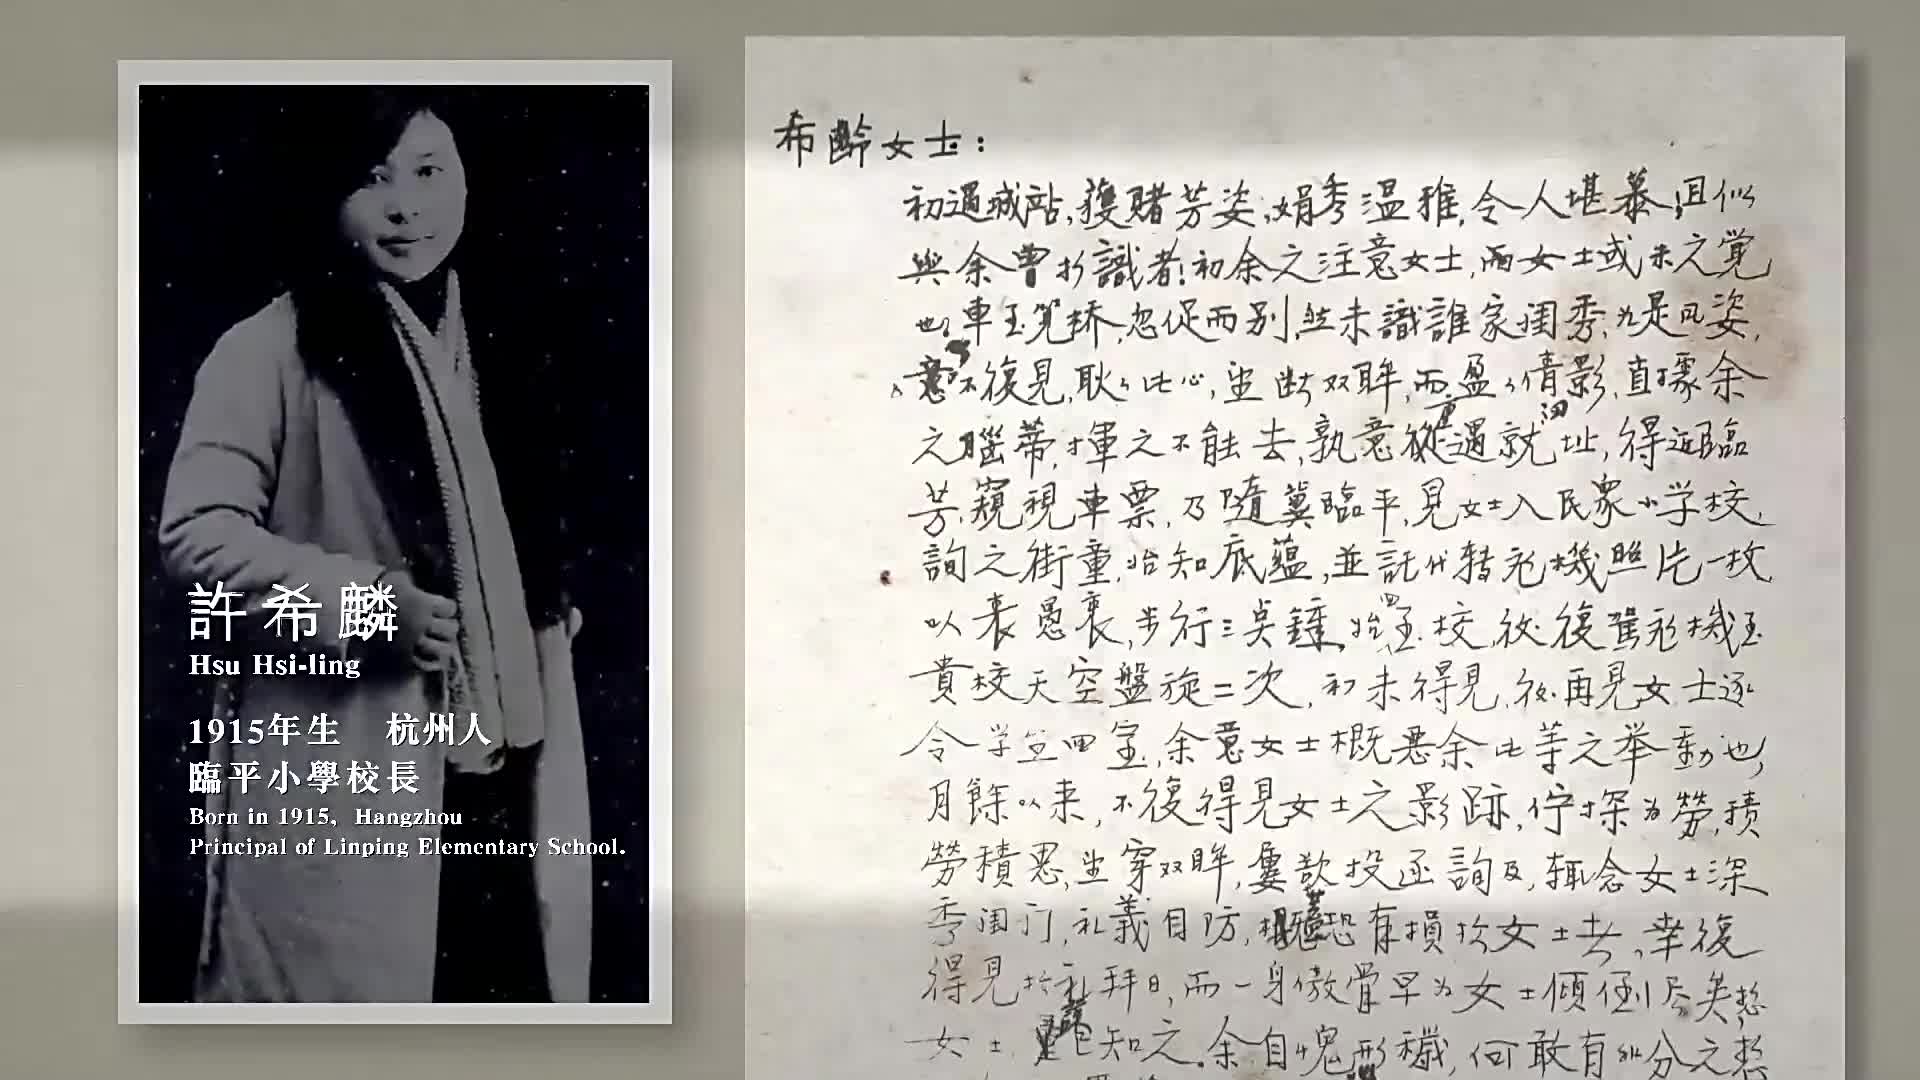 許希麟
Hsu Hsi-ling
1915年生 杭州人
臨平小學校長
Born in 1915, Hangzhou
Principal of Linping Elementary School.
希齡女士：
初遇城站,獲賭芳姿,娟秀溫雅,令人堪慕,且似
與余曾於識者!初余之注意女士,而女士或未之覺
也,車至筧桥,忽促而别,然未識誰家闺秀,為是凤姿,
意不復見,耿々此心,望断双眸,而盈々倩影,直據余
之腦蒂,揮之不能去,孰意從重遇就沼址,得近臨
芳,窺視車票,乃隨冀臨平,見女士入民衆小学校,
詢之街童,始知底蘊,並託代转飛機照片一枚,
以表愚衷,步行三点鐘,始回至校,後復駕飛機至
貴校天空盤旋二次,初未得見,後再見女士逐
令学生回室,余意女士概惡余此等之举動也,
月餘以来,不復得見女士之影跡,佇探為勞,積
勞積思,望穿双眸,屢欲投函詢及,輒念女士深
秀闺门,礼義自防,恐有損於女士者,幸復
得見於礼拜日,而一身傲骨早為女士傾倒尽矣,愁
女士 已知之.余自愧形穢,何敢有非分之愁